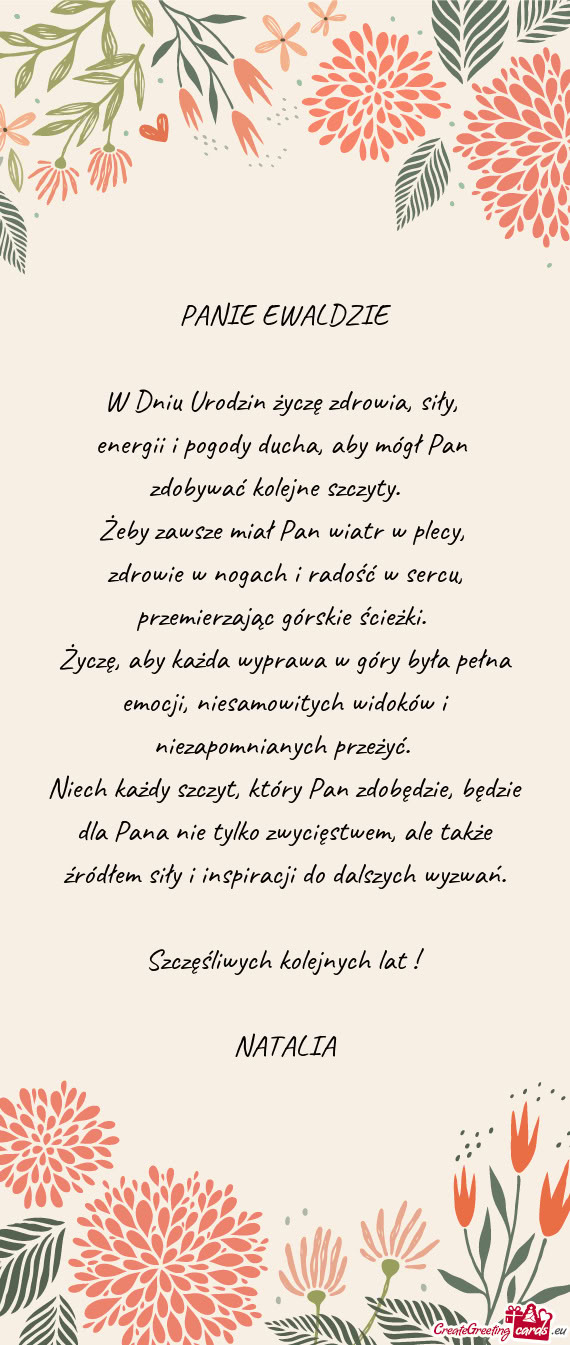 PANIE EWALDZIE
W Dniu Urodzin życzę zdrowia, siły,
energii i pogody ducha, aby mógł Pan
zdobywać kolejne szczyty.
Żeby zawsze miał Pan wiatr w plecy,
zdrowie w nogach i radość w sercu,
przemierzając górskie ścieżki.
Życzę, aby każda wyprawa w góry była pełna
emocji, niesamowitych widoków i
niezapomnianych przeżyć.
Niech każdy szczyt, który Pan zdobędzie, będzie
dla Pana nie tylko zwycięstwem, ale także
źródłem siły i inspiracji do dalszych wyzwań.
Szczęśliwych kolejnych lat !
NATALIA
CreateGreeting cards .eu